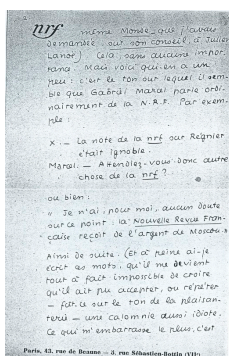 2
nrf même Monde, que j'avais
demandée, sur son conseil, à Julien
Lanoë). Cela, sans aucune impor-
tance. Mais voici qui en a un
peu : c'est le ton sur lequel il sem-
ble que Gabriel Marcel parle ordi-
nairement de la N.R.F. Par exem-
ple :
X. — La note de la nrf sur Régnier
était ignoble.
Marcel. — Attendiez-vous donc autre
chose de la nrf ?
ou bien :
« Je n'ai, pour moi, aucun doute
sur ce point : la Nouvelle Revue Fran-
çaise reçoit de l'argent de Moscou. »
Ainsi de suite. (Et à peine ai-je
écrit ces mots, qu'il me devient
tout à fait impossible de croire
qu'il ait pu accepter, ou répéter
— fût-ce sur le ton de la plaisan-
terie — une calomnie aussi idiote.
Ce qui m'embarrasse le plus, c'est
Paris, 43, rue de Beaune — 5, rue Sébastien-Bottin (VIIe)